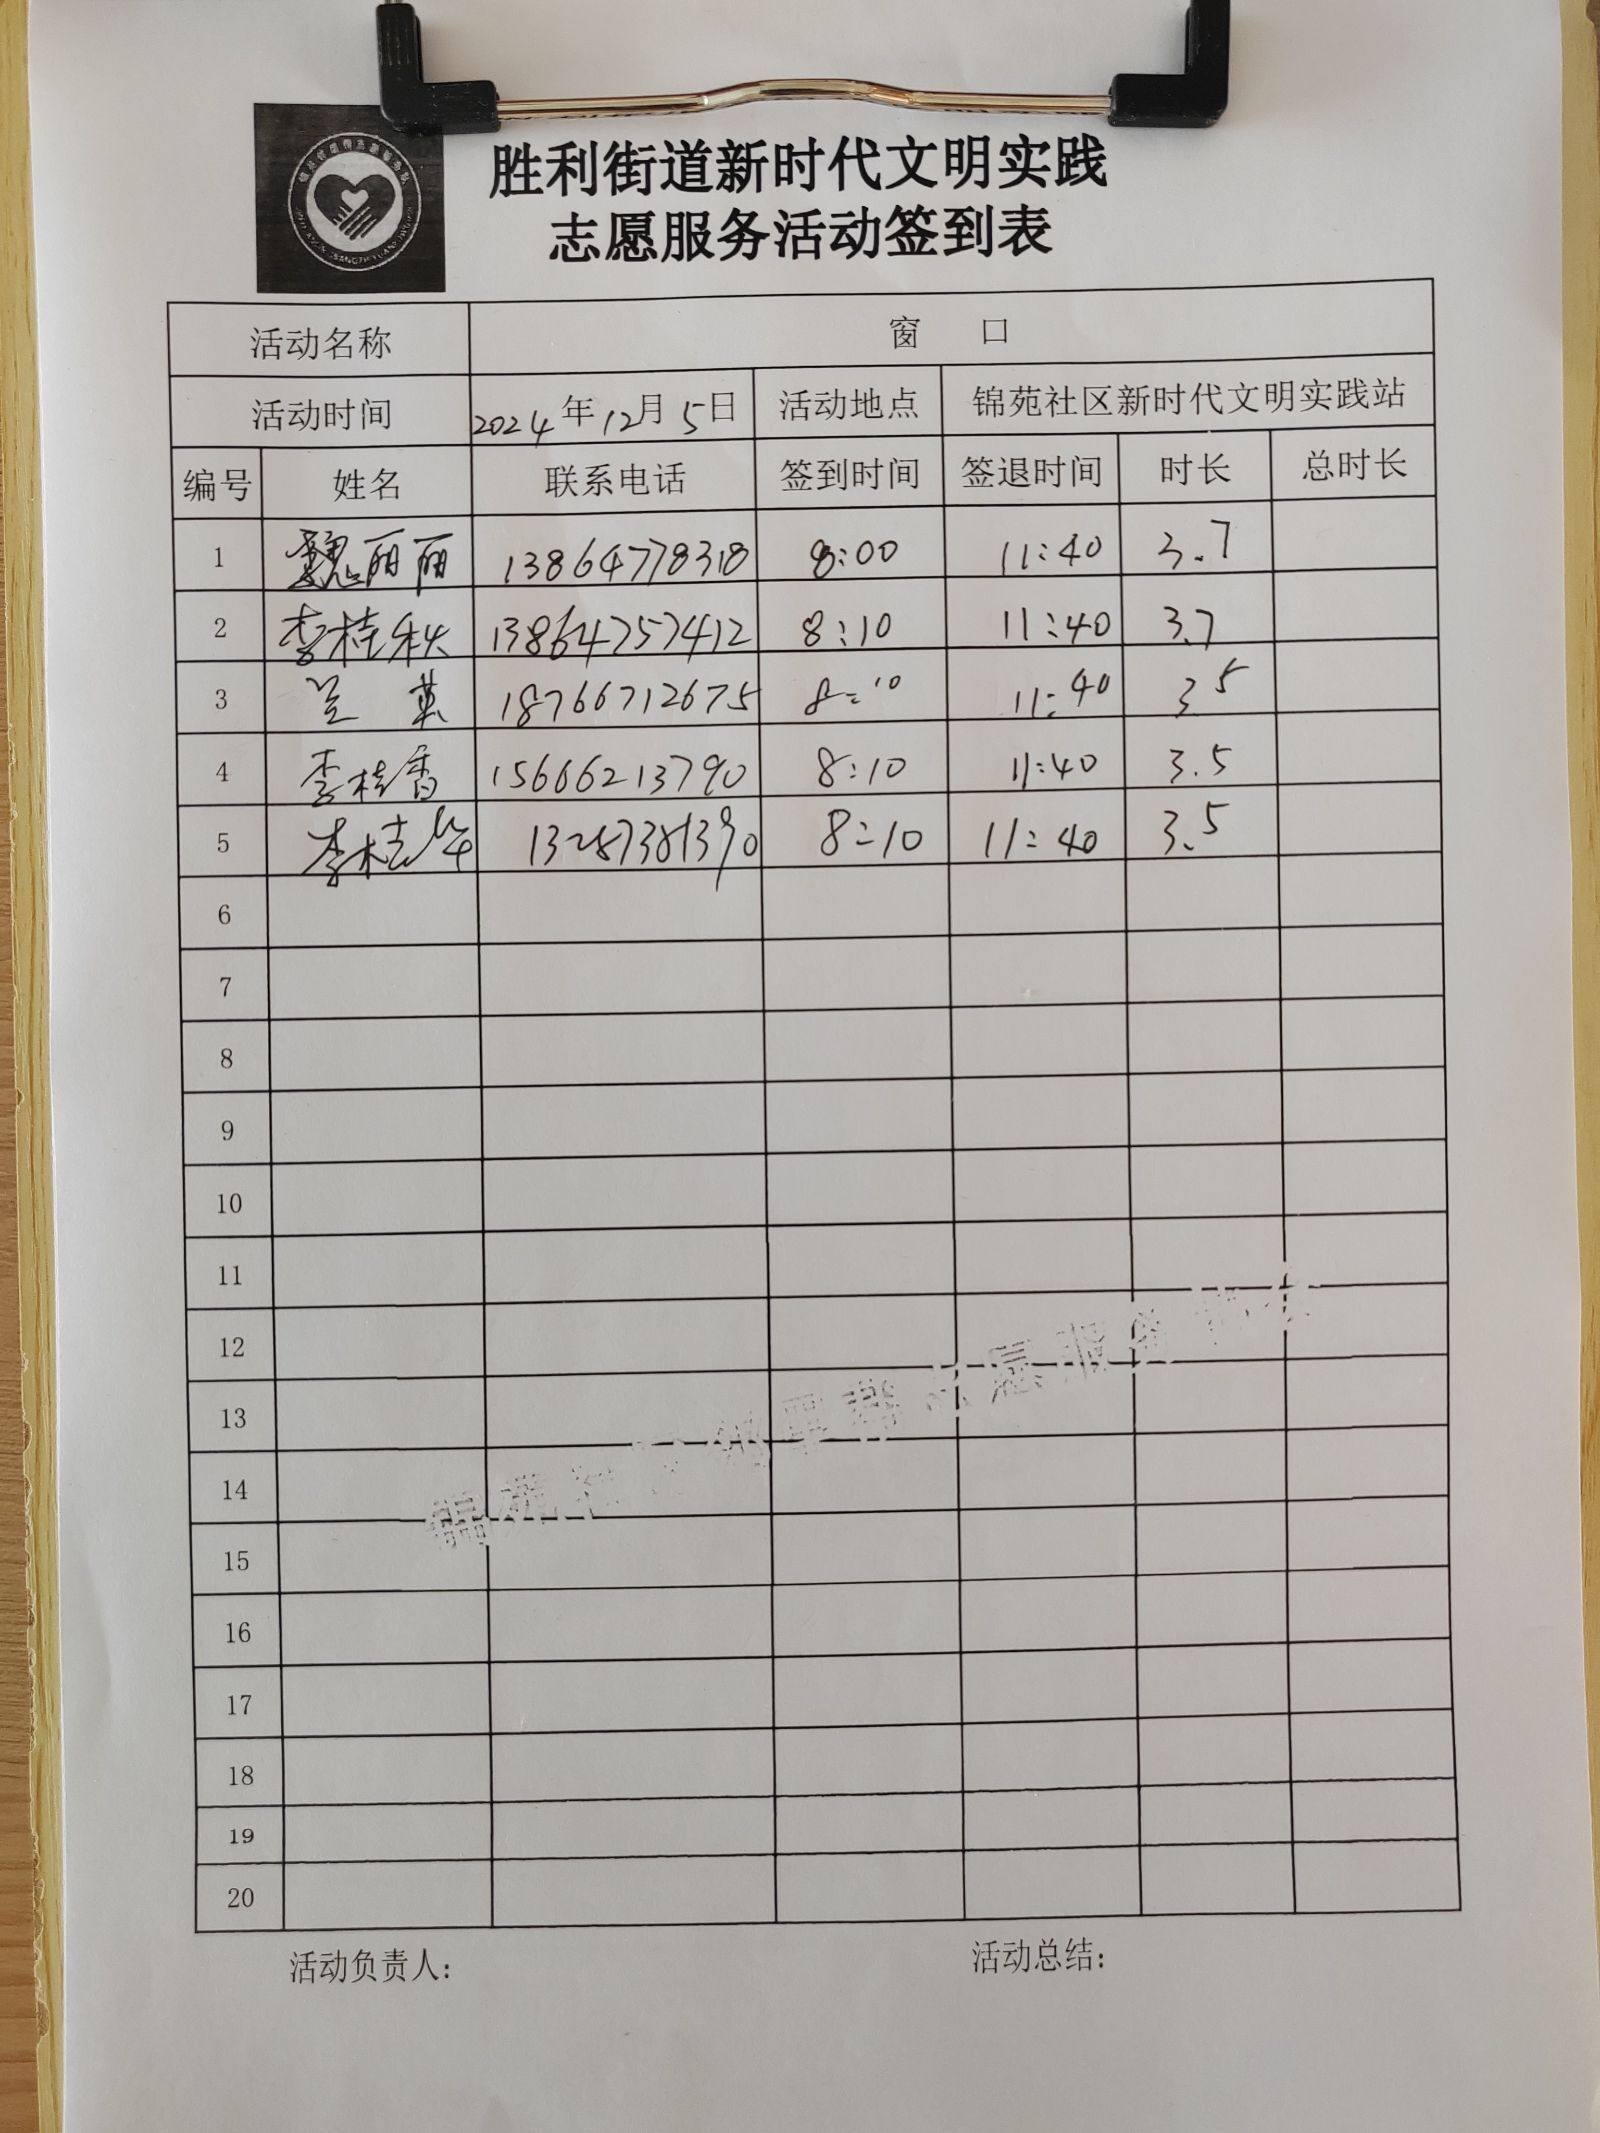 胜利街道新时代文明实践
志愿服务活动签到表
活动名称 窗 口
活动时间 2024年12月5日 活动地点 锦苑社区新时代文明实践站
编号 姓名 联系电话 签到时间 签退时间 时长 总时长
1 魏丽丽 13864778318 8:00 11:40 3.7
2 李桂秋 13864757412 8:10 11:40 3.7
3 兰英 18766712675 8:10 11:40 3.5
4 李桂香 15666213790 8:10 11:40 3.5
5 李桂华 13287381390 8:10 11:40 3.5
6
7
8
9
10
11
12
13
14
15
16
17
18
19
20
活动负责人: 活动总结: